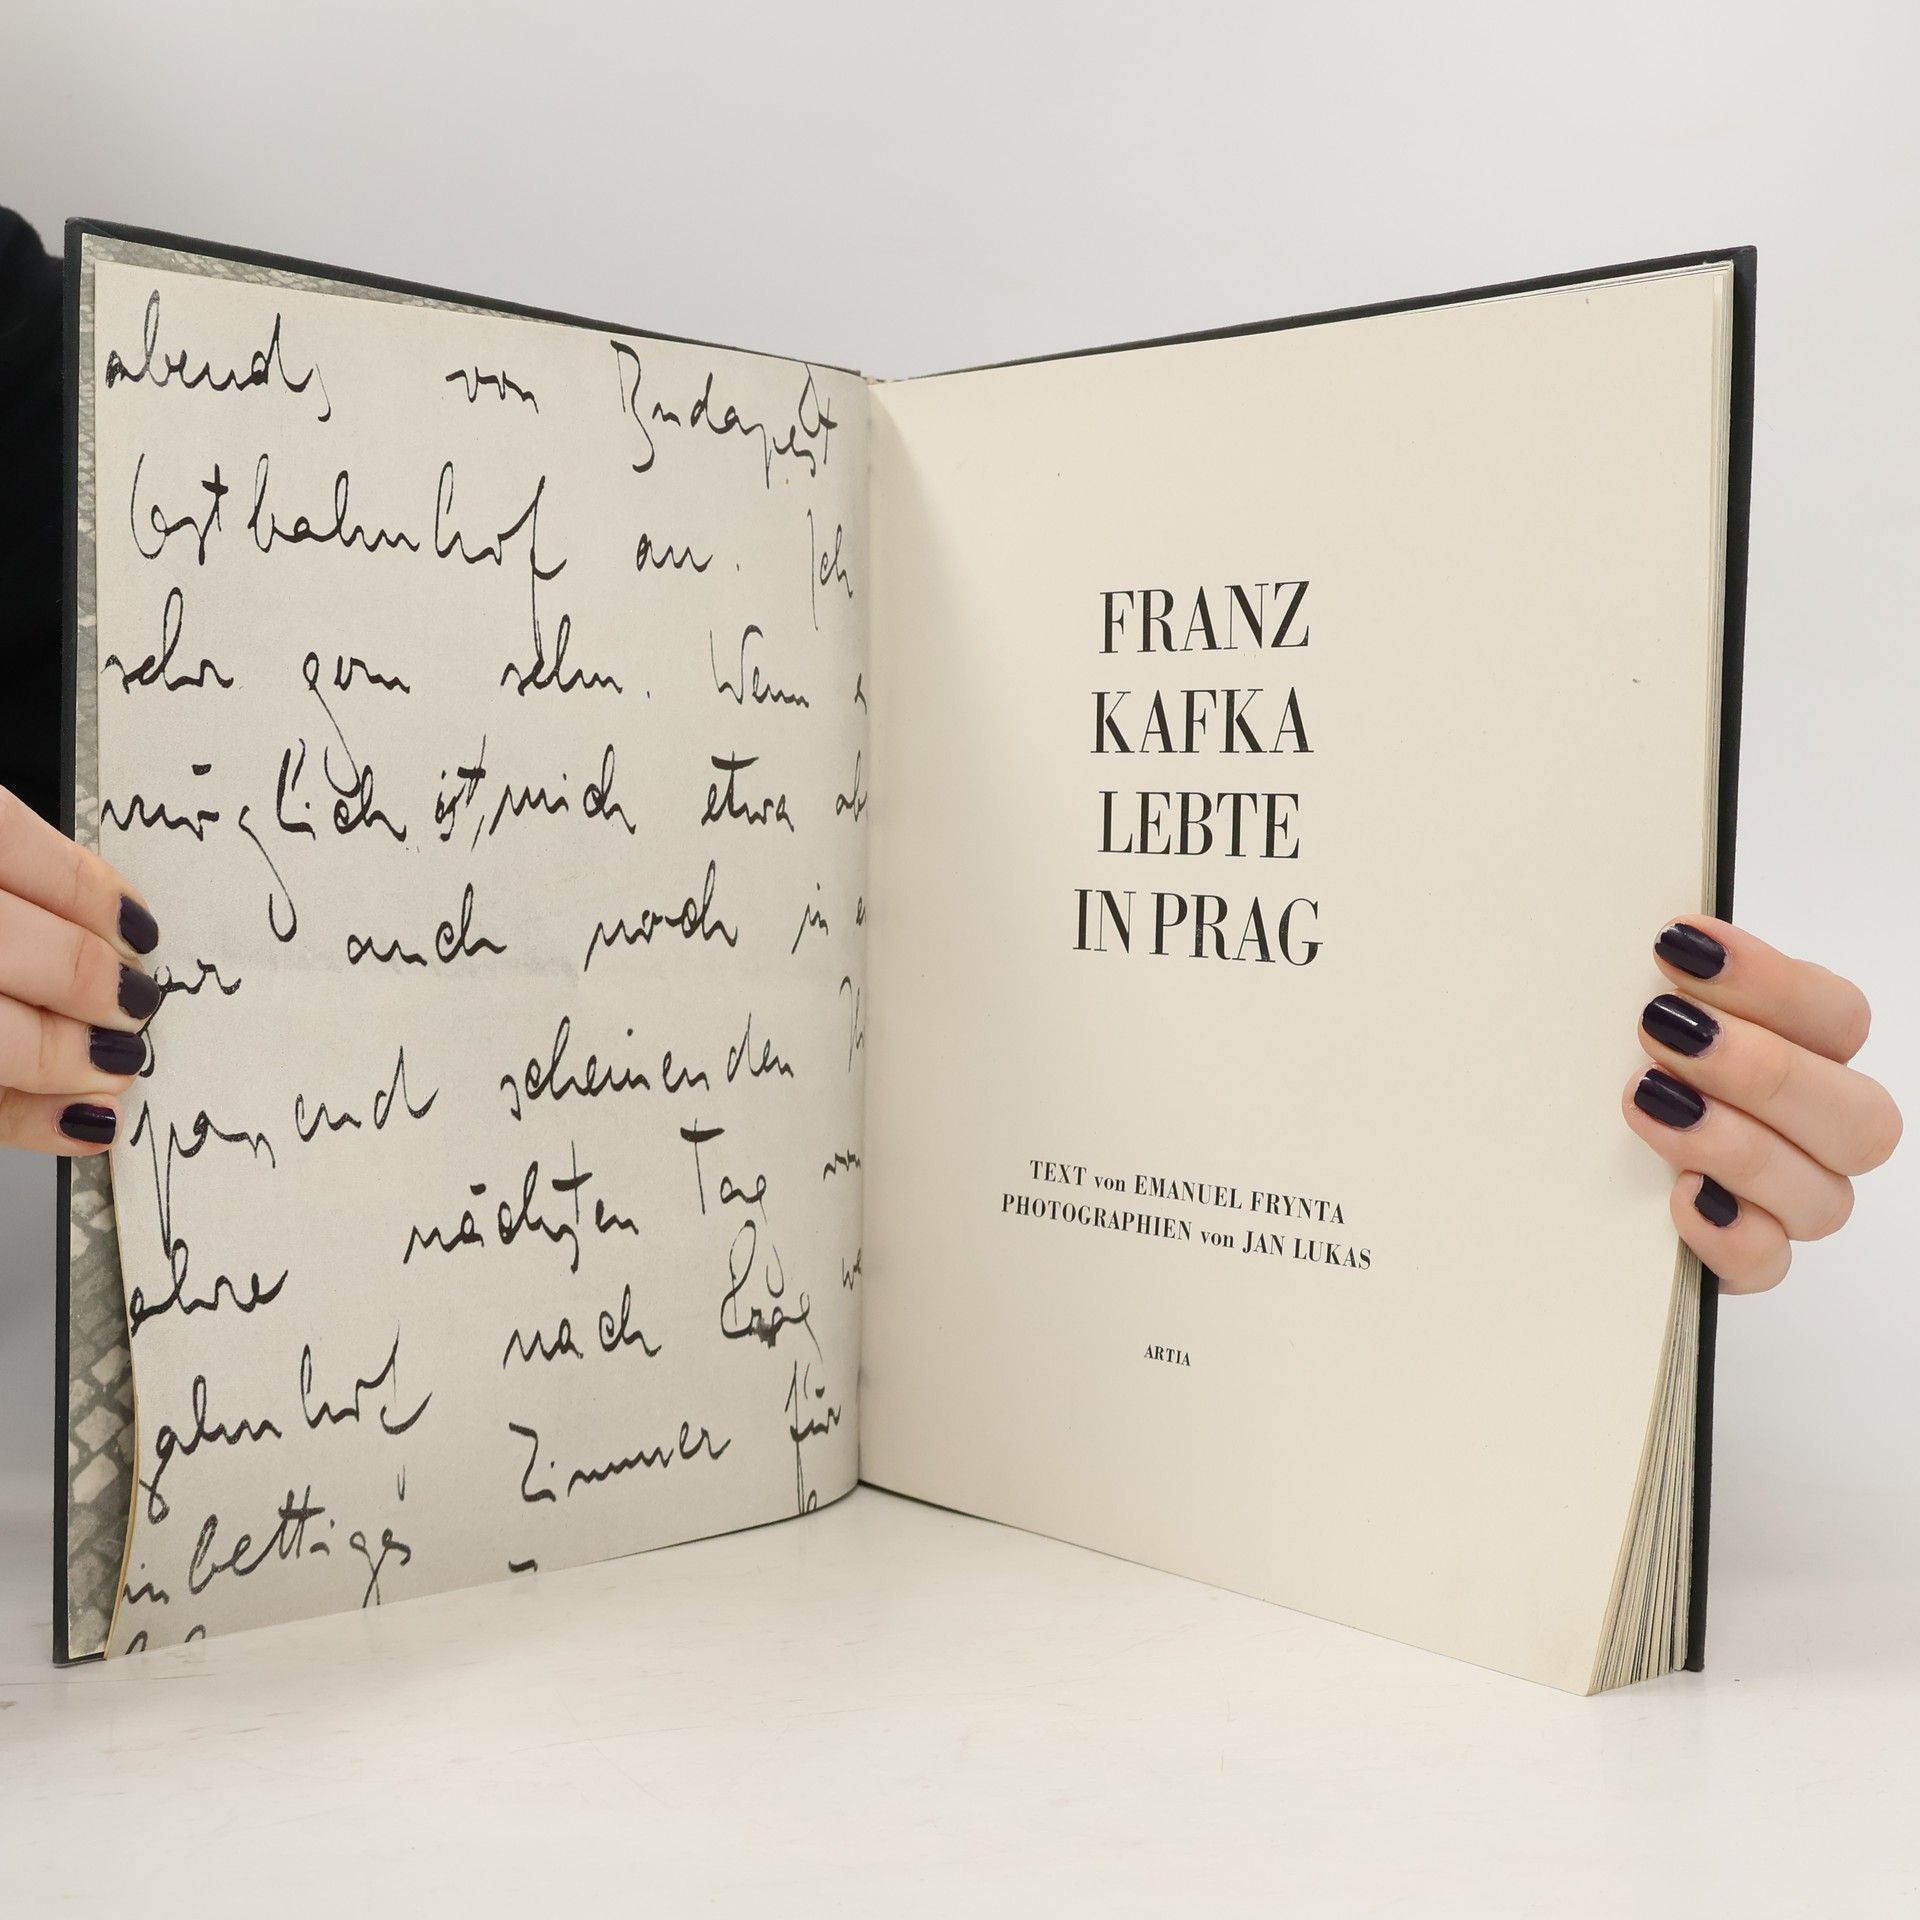 abends von Budapest
Ostbahnhof an. Ich
sehr gern sehn. Wenn
möglich ist, mich etwa
gar auch noch in
passend scheinenden
nächsten Tag von
nach Prag
ahnhof
Zimmer für
inbettiges
FRANZ
KAFKA
LEBTE
IN PRAG
TEXT von EMANUEL FRYNTA
PHOTOGRAPHIEN von JAN LUKAS
ARTIA